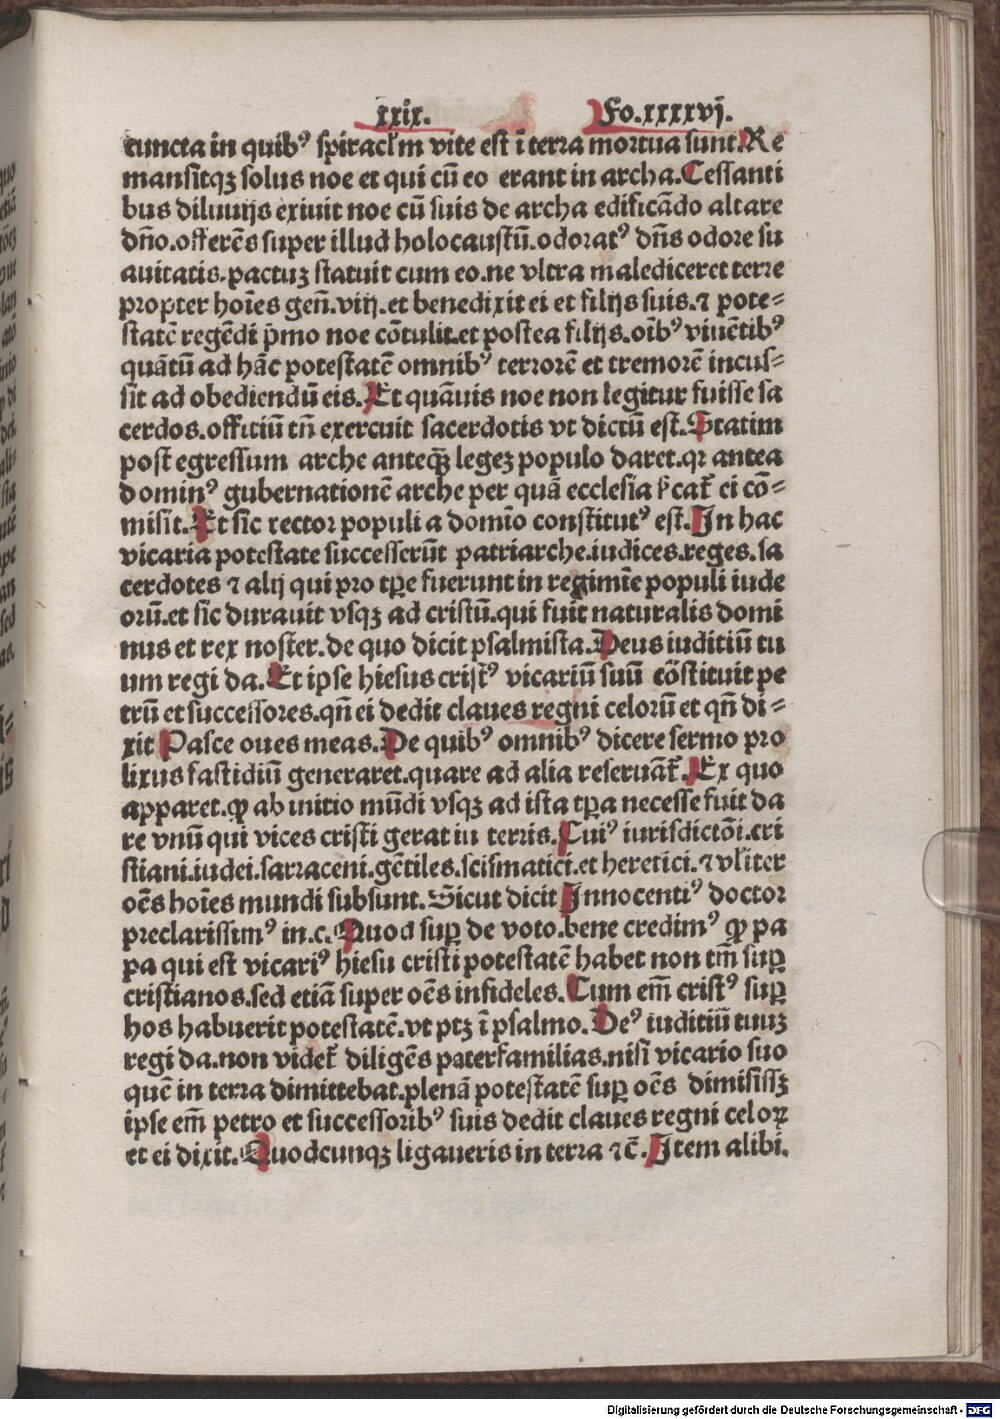 xxix. Fo.xxxxvj.
cuncta in quibꝰ spiraclm vite est ī terra mortua sunt. Re
mansitqꝫ solus noe et qui cū eo erant in archa. Cessanti
bus diluuijs exiuit noe cū suis de archa edificādo altare
dño. offerēs super illud holocaustū. odoratꝰ dñs odore su
auitatis. pactuꝫ statuit cum eo. ne vltra malediceret terre
propter hoīes geñ. viij. et benedixit ei et filijs suis. ⁊ pote⸗
statē regēdi p̄mo noe cōtulit. et postea filijs. oībꝰ viuētibꝰ
quātū ad hāc potestatē omnibꝰ terrorē et tremorē incus⸗
sit ad obediendū eis. Et quāuis noe non legitur fuisse sa
cerdos. officiū tñ exercuit sacerdotis vt dictū est. Statim
post egressum arche anteqꝫ̄ legeꝫ populo daret. qꝛ antea
dominꝰ gubernationē arche per quā ecclesia scat̄ ei cō⸗
misit. Et sic rector populi a domīo constitutꝰ est. In hac
vicaria potestate successerūt patriarche. iudices. reges. sa
cerdotes ⁊ alij qui pro tꝑe fuerunt in regimīe populi iude
orū. et sic durauit vsqꝫ ad cristū. qui fuit naturalis domi
nus et rex noster. de quo dicit psalmista. Deus iuditiū tu
um regi da. Et ipse hiesus cristꝰ vicariū suū cōstituit pe
trū et successores. qñ ei dedit claues regni celorū et qñ di⸗
xit Pasce oues meas. De quibꝰ omnibꝰ dicere sermo pro
lixus fastidiū generaret. quare ad alia reseruāt̄. Ex quo
apparet. ꝙ ab initio mūdi vsqꝫ ad ista tꝑa necesse fuit da
re vnū qui vices cristi gerat in terris. Cuiꝰ iurisdictōi. cri
stiani. iudei. sarraceni. gētiles. scismatici. et heretici. ⁊ vl̄iter
oēs hoīes mundi subsunt. Sicut dicit Innocentiꝰ doctor
preclarissimꝰ in. c. Quod suꝑ de voto. bene credimꝰ ꝙ pa
pa qui est vicariꝰ hiesu cristi potestatē habet non tm̄ suꝑ
cristianos. sed etiā super oēs infideles. Cum em̄ cristꝰ suꝑ
hos habuerit potestatē. vt ptꝫ ī psalmo. Deꝰ iuditiū tuuꝫ
regi da. non videt̄ diligēs paterfamilias. nisi vicario suo
quē in terra dimittebat. plenā potestatē suꝑ oēs dimisissꝫ
ipse em̄ petro et successoribꝰ suis dedit claues regni celoꝝ
et ei dixit. Quodcunqꝫ ligaueris in terra ⁊c̄. Item alibi.
Digitalisierung gefördert durch die Deutsche Forschungsgemeinschaft - DFG